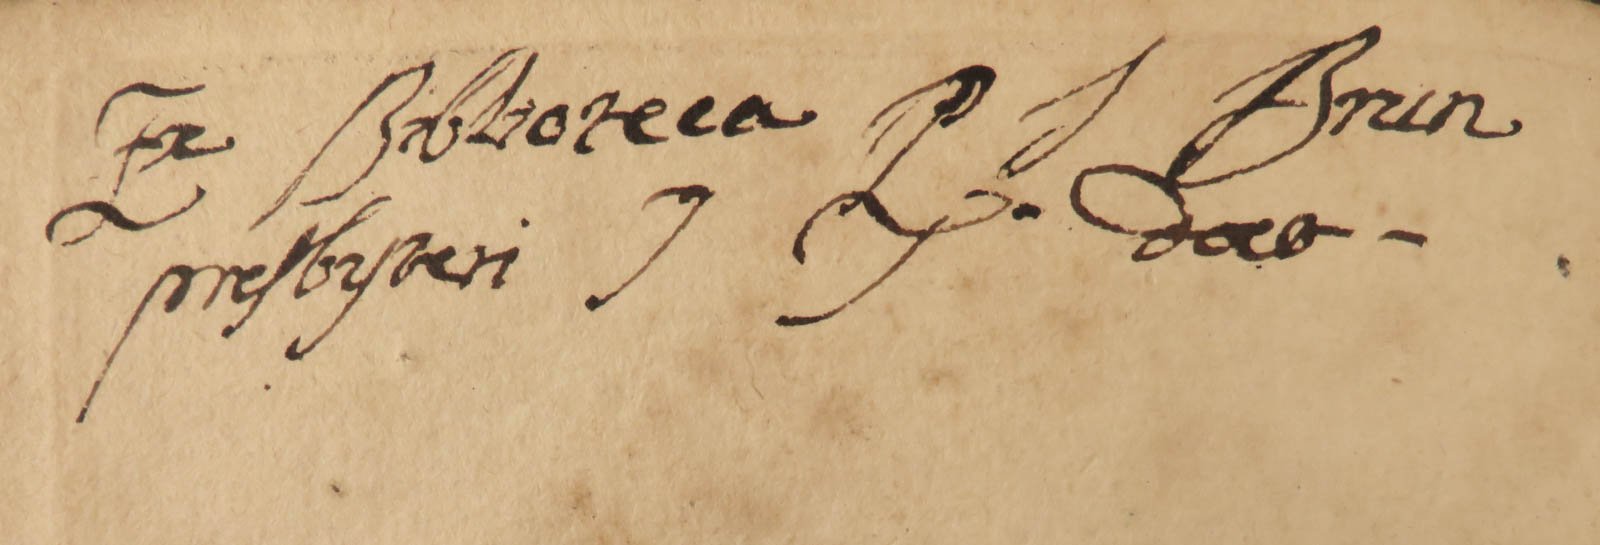 Ex Biblioteca P J Brun
presbyteri J P. doct-